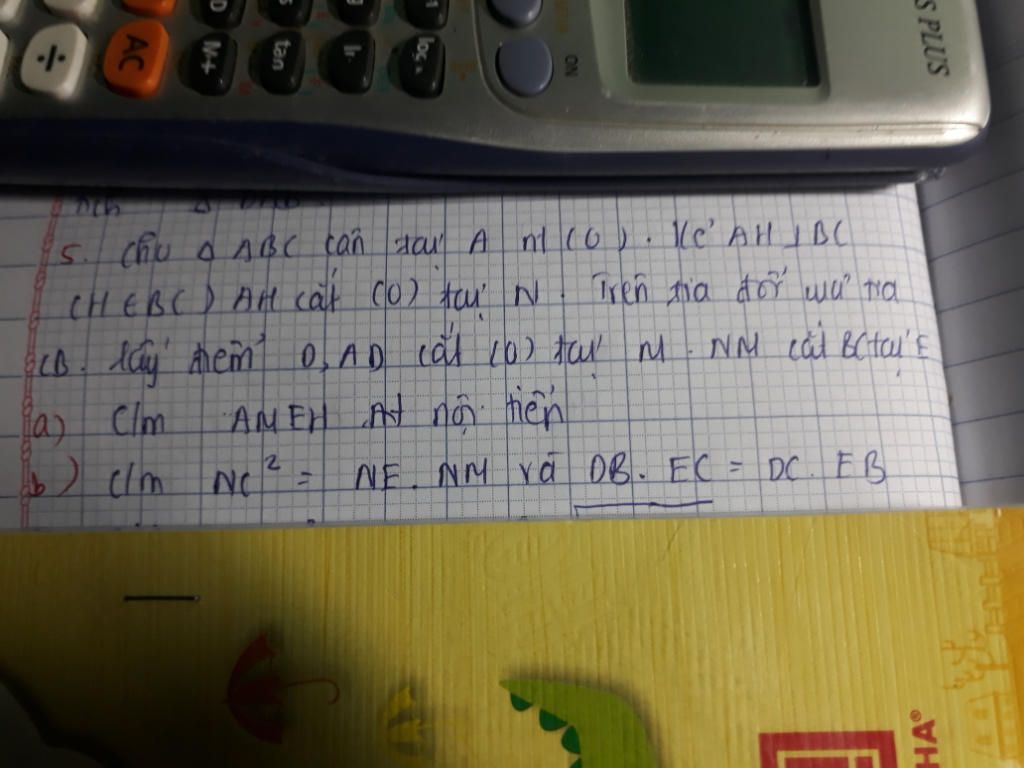 S PLUS
ON
÷
AC
M+
tan
ln
log
5. Cho Δ ABC cân tại A nt (O). Kẻ AH ⊥ BC
(H ∈ BC) AH cắt (O) tại N. Trên tia đối của tia
CB. lấy điểm D, AD cắt (O) tại M. NM cắt BC tại E
a) C/m AMEH nội tiếp
b) C/m NC² = NE. NM và DB. EC = DC. EB
HA®